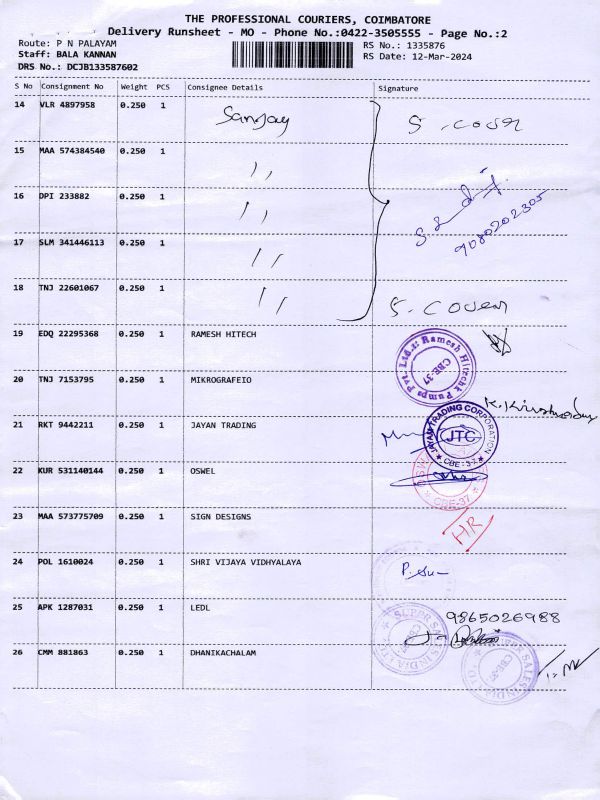 THE PROFESSIONAL COURIERS, COIMBATORE
Delivery Runsheet - MO - Phone No.:0422-3505555 - Page No.:2
Route: P N PALAYAM
RS No.: 1335876
Staff: BALA KANNAN
RS Date: 12-Mar-2024
DRS No.: DCJB133587602
S No Consignment No Weight PCS Consignee Details Signature
14 VLR 4897958 0.250 1 Sanjay 5 . cover
15 MAA 574384540 0.250 1 ,,
16 DPI 233882 0.250 1 ,,
9080202305
17 SLM 341446113 0.250 1 ,,
18 TNJ 22601067 0.250 1 ,, 5. cover
19 EDQ 22295368 0.250 1 RAMESH HITECH
Ramesh Hitech Pumps Pvt. Ltd.,
CBE-37
20 TNJ 7153795 0.250 1 MIKROGRAFEIO
21 RKT 9442211 0.250 1 JAYAN TRADING
JAYAM TRADING CORPORATION
JTC
CBE-37
22 KUR 531140144 0.250 1 OSWEL
CBE-37
23 MAA 573775709 0.250 1 SIGN DESIGNS
HR
24 POL 1610024 0.250 1 SHRI VIJAYA VIDHYALAYA
25 APK 1287031 0.250 1 LEDL 9865026988
26 CMM 881863 0.250 1 DHANIKACHALAM